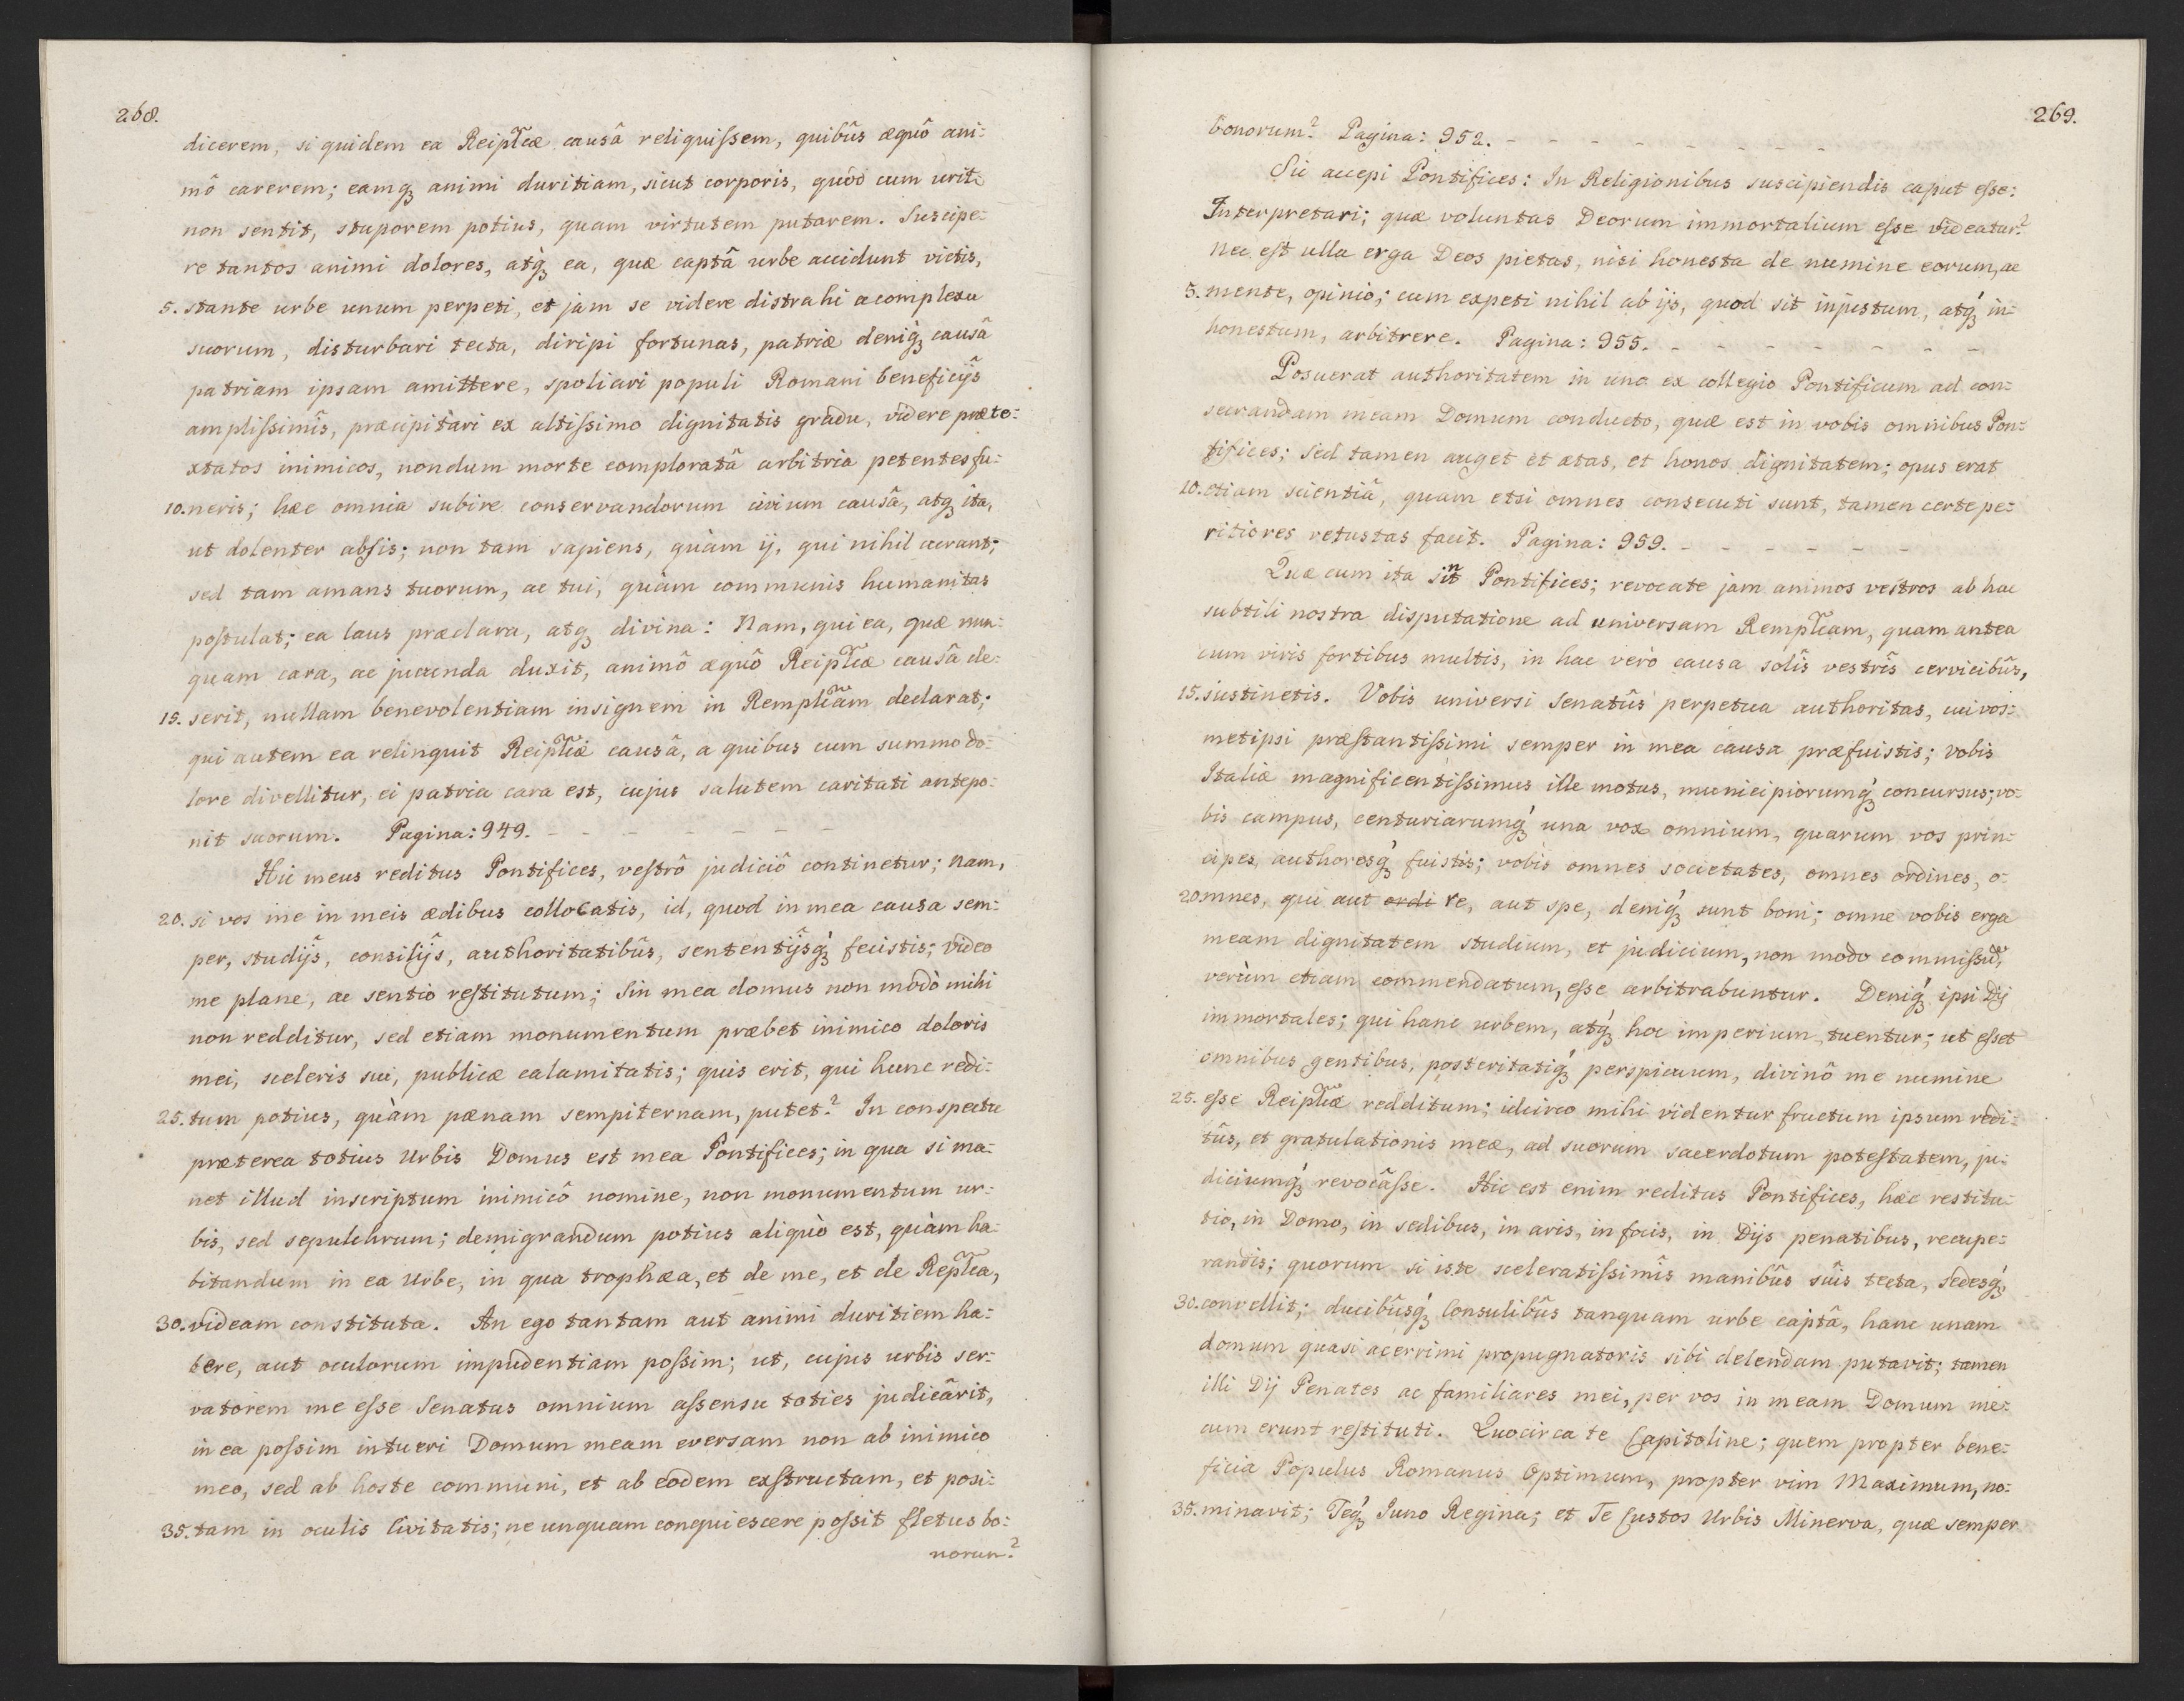 268.
dicerem, si quidem ea Reiplcæ causâ reliquissem, quibûs æquô ani:
mô carerem; eamq; animi duritiam, sicut corporis, quòd cum urit:
non sentit, stuporem potius, quam virtutem putarem. Suscipe:
re tantos animi dolores, atq; ea, quæ captâ urbe accidunt victis,
5. stante urbe unum perpeti, et jam se videre distrahi a complexu
suorum, disturbari tecta, diripi fortunas, patriæ deniq; causâ
patriam ipsam amittere, spoliari populi Romani beneficijs
amplissimîs, præcipitari ex altissimo dignitatis gradu, videre præte:
xtatos inimicos, nondum morte comploratâ arbitria petentes fu:
10. neris; hæc omnia subire conservandorum civium causâ, atq; ita,
ut dolenter absis; non tam sapiens, quàm ij, qui nihil curant;
sed tam amans tuorum, ac tui, quàm communis humanitas
postulat; ea laus præclara, atq; divina: Nam, qui ea, quæ nun:
quam cara, ac jucunda duxit, animô æquô Reiplcæ causâ de:
15. serit, nullam benevolentiam insignem in Remplcam declarat;
qui autem ea relinquit Reiplcæ causâ, a quibus cum summo do:
lore divellitur, ei patria cara est, cujus salutem caritati antepo:
nit suorum. Pagina: 949. - - - - - - -
Hic meus reditus Pontifices, vestrô judiciô continetur; Nam,
20. si vos me in meis ædibus collocatis, id, quod in mea causa sem:
per, studijs, consilijs, authoritatibûs, sententijsq; fecistis; video
me plane, ac sentio restitutum; Sin mea domus non modò mihi
non redditur, sed etiam monumentum præbet inimico doloris
mei, sceleris sui, publicæ calamitatis; quis erit, qui hunc redi:
25. tum potius, quàm pænam sempiternam, putet? In conspectu
præterea totius Urbis Domus est mea Pontifices; in qua si ma:
net illud inscriptum inimicô nomine, non monumentum ur:
bis, sed sepulchrum; demigrandum potius aliquò est, quàm ha:
bitandum in ea Urbe, in qua trophæa, et de me, et de Replca,
30. videam constituta. An ego tantam aut animi duritiem ha:
bere, aut oculorum impudentiam possim; ut, cujus urbis ser:
vatorem me esse Senatus omnium assensu toties judicârit,
in ea possim intueri Domum meam eversam non ab inimico
meo, sed ab hoste communi, et ab eodem exstructam, et posi:
35. tam in oculis Civitatis; ne unquam conquiescere possit fletus bo:
norum?
269.
bonorum? Pagina: 952. - - - - - - - -
Sic accepi Pontifices: In Religionibus suscipiendis caput esse:
Interpretari; quæ voluntas Deorum immortalium esse videatur?
nec est ulla erga Deos pietas, nisi honesta de numine eorum, ac
5. mente, opinio; cum expeti nihil ab ijs, quod sit injustum, atq; in:
honestum, arbitrere. Pagina: 955. - - - - - - -
Posuerat authoritatem in uno ex collegio Pontificum ad con:
secrandam meam Domum conducto, quæ est in vobis omnibus Pon:
tifices; sed tamen auget et ætas, et honos dignitatem; opus erat
10. etiam scientiâ, quam etsi omnes consecuti sunt, tamen certe pe:
ritiores vetustas facit. Pagina: 959. - - - - - -
Quæ cum ita sint Pontifices; revocate jam animos vestros ab hac
subtili nostra disputatione ad universam Remplcam, quam antea
cum viris fortibus multis, in hac verò causa solîs vestrîs cervicibûs,
15. sustinetis. Vobis universi Senatûs perpetua authoritas, cui vos:
metipsi præstantissimi semper in mea causa præfuistis; vobis
Italiæ magnificentissimus ille motus, municipiorumq; concursus; vo:
bis campus, centuriarumq; una vox omnium, quarum vos prin:
cipes, authoresq; fuistis; vobis omnes societates, omnes ordines, o:
20. mnes, qui aut ordi re, aut spe, deniq; sunt boni; omne vobis erga
meam dignitatem studium, et judicium, non modo commissũ,
verùm etiam commendatum, esse arbitrabuntur. Deniq; ipsi Dij
immortales; qui hanc urbem, atq; hoc imperium tuentur; ut esset
omnibus gentibus, posteritatiq; perspicuum, divinô me numine
25. esse Reiplcæ redditum; idcirco mihi videntur fructum ipsum redi:
tûs, et gratulationis meæ, ad suorum sacerdotum potestatem, ju:
diciumq; revocâsse. Hic est enim reditus Pontifices, hæc restitu:
tio, in Domo, in sedibus, in aris, in focis, in Dijs penatibus, recupe:
randis; quorum si iste sceleratissimîs manibûs suîs tecta, sedesq;
30. convellit; ducibûsq; Consulibûs tanquam urbe captâ, hanc unam
domum quasi acerrimi propugnatoris sibi delendam putavit; tamen
illi Dij Penates ac familiares mei, per vos in meam Domum me:
cum erunt restituti. Quocirca te Capitoline; quem propter bene:
ficia Populus Romanus Optimum, propter vim Maximum, no:
35. minavit; Teq; Juno Regina; et Te Custos Urbis Minerva, quæ semper